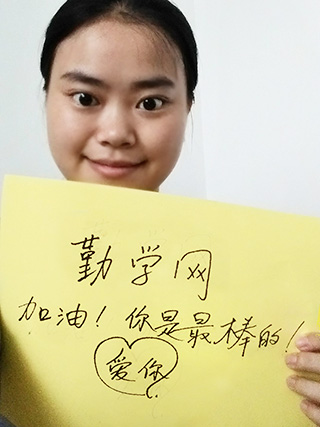 勤学网
加油！你是最棒的！
爱你